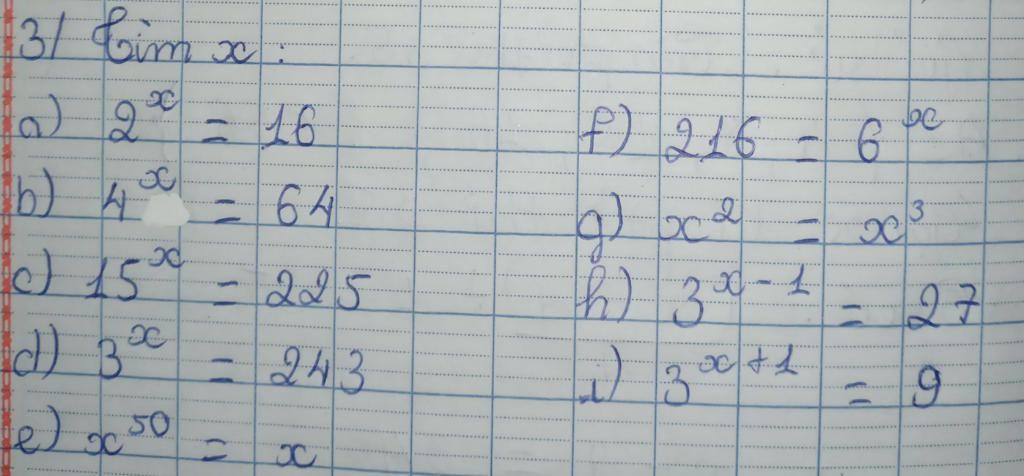 3/ Tìm x :
a) 2^x = 16
b) 4^x = 64
c) 15^x = 225
d) 3^x = 243
e) x^50 = x
f) 216 = 6^x
g) x^2 = x^3
h) 3^x-1 = 27
i) 3^x+1 = 9